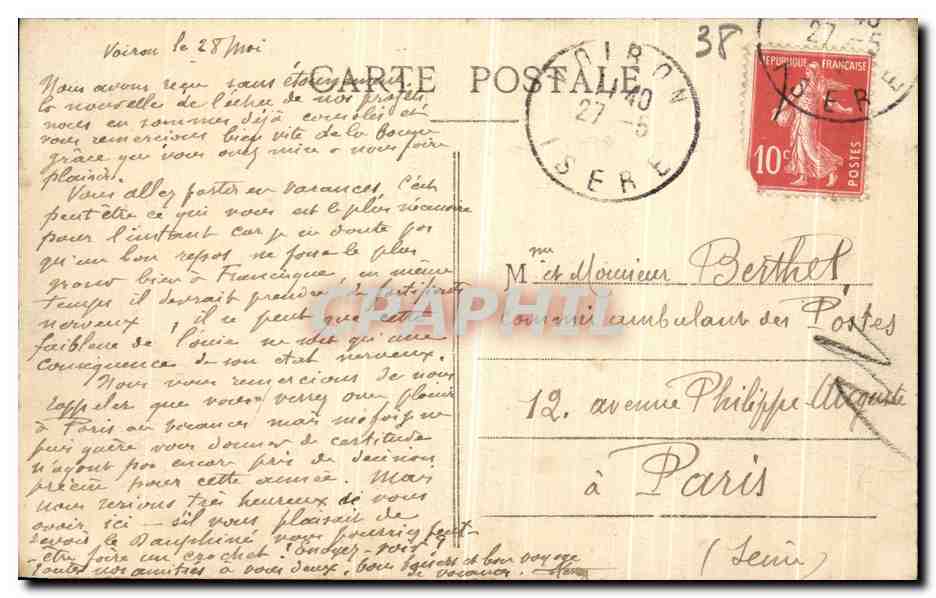 Voiron le 28 Mai
Nous avons reçu sans étonnement
la nouvelle de l'échec de nos projets
nous en sommes déjà consolés et
vous remercions bien vite de la bonne
grâce que vous avez mise à nous faire
plaisir.
Vous allez partir en vacances, c'est
peut être ce qui vous est le plus nécessaire
pour l'instant car je ne doute pas
qu'un bon repos ne fasse le plus
grand bien à , en même
temps il devrait prendre des fortifiants
nerveux, il se peut que cette
faiblesse de l'ouïe ne soit qu'une
conséquence de son état nerveux.
Nous vous remercions de nous
rappeler que vous verrez avec plaisir
à Paris en vacances mais ma foi je ne
puis guère vous donner de certitude
n'ayant pas encore pris de décision
précise pour cette année. Mais
nous serions très heureux de vous
avoir ici – s'il vous plaisait de
revoir le Dauphiné vous pourriez peut-
être faire un crochet !
Toutes nos amitiés à vous deux. bons baisers et bon voyage
de vacances.
CARTE POSTALE
38
VOIRON
40
27 - 5
ISERE
40
27 - 5
ISERE
REPUBLIQUE FRANÇAISE
10c
POSTES
Mme et Monsieur Berthet
Commis ambulant des Postes
12. avenue Philippe-Auguste
à Paris
(Seine)
CPAPHIL